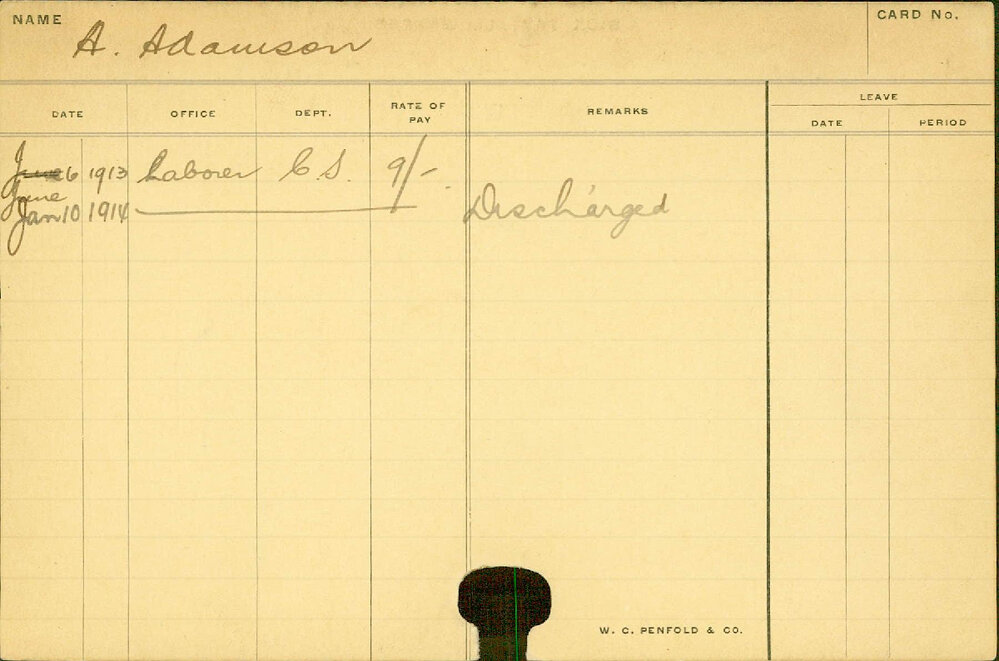 NAME
A. Adamson
CARD No.
DATE OFFICE DEPT. RATE OF PAY REMARKS LEAVE
DATE PERIOD
6 1913 Laborer C.S. 9/-
June
Jan 10 1914 Discharged
W. C. PENFOLD & CO.